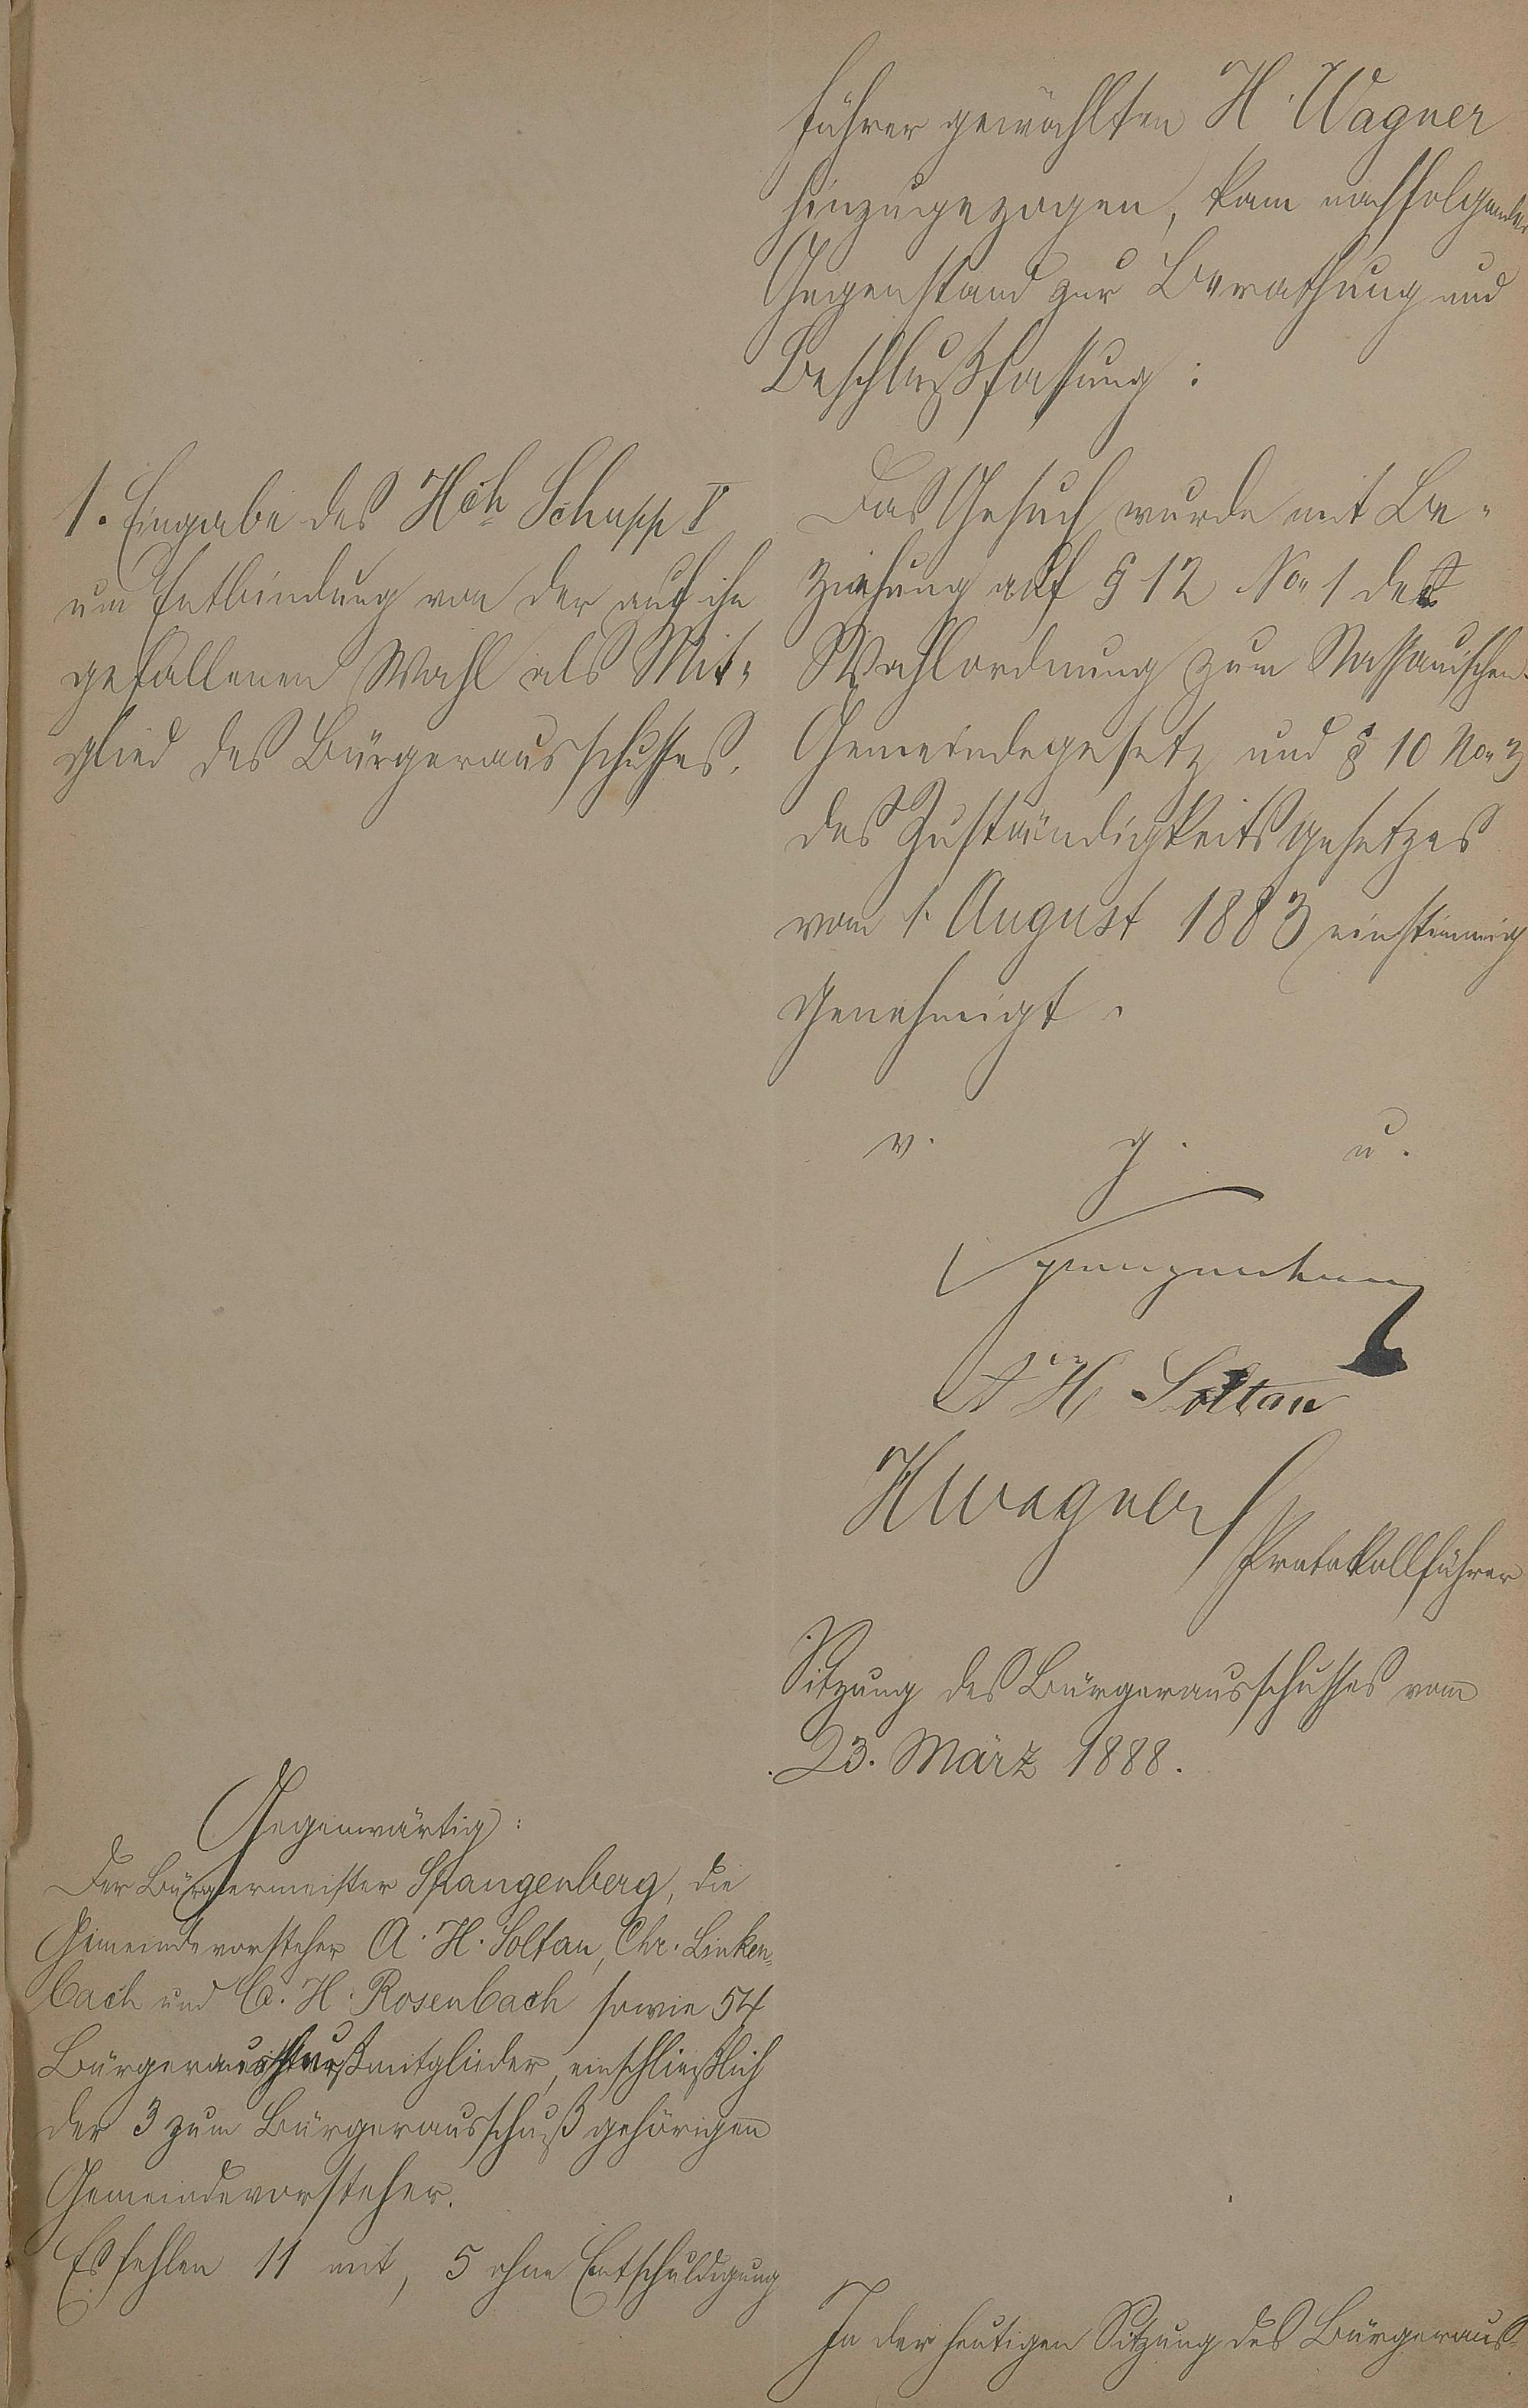 führer gewählten H. Wagner
hinzugezogen, kam nachfolgender
Gegenstand zur Berathung und
Beschlußfassung:
1. Eingabe des Hch Schupp V
um Entbindung von der auf ihn
gefallenen Wahl als Mit-
glied des Bürgerausschusses.
Das Gesuch wurde mit Be-
ziehung auf § 12 No 1 der
Wahlordnung zum Nassauischen
Gemeindegesetz und § 10 No 3
des Zuständigkeitsgesetzes
vom 1. August 1883 einstimmig
genehmigt.
v. g. u.
Spangenberg
A H Soltau
H Wagner
Protokollführer
Sitzung des Bürgerausschusses vom
23. März 1888.
Gegenwärtig:
Der Bürgermeister Spangenberg, die
Gemeindevorsteher A. H. Soltau, Chr. Linken-
bach und C. H. Rosenbach sowie 54
Bürgerausschußmitglieder, einschließlich
der 3 zum Bürgerausschuß gehörigen
Gemeindevorsteher.
Es fehlen 11 mit, 5 ohne Entschuldigung
In der heutigen Sitzung des Bürgeraus-